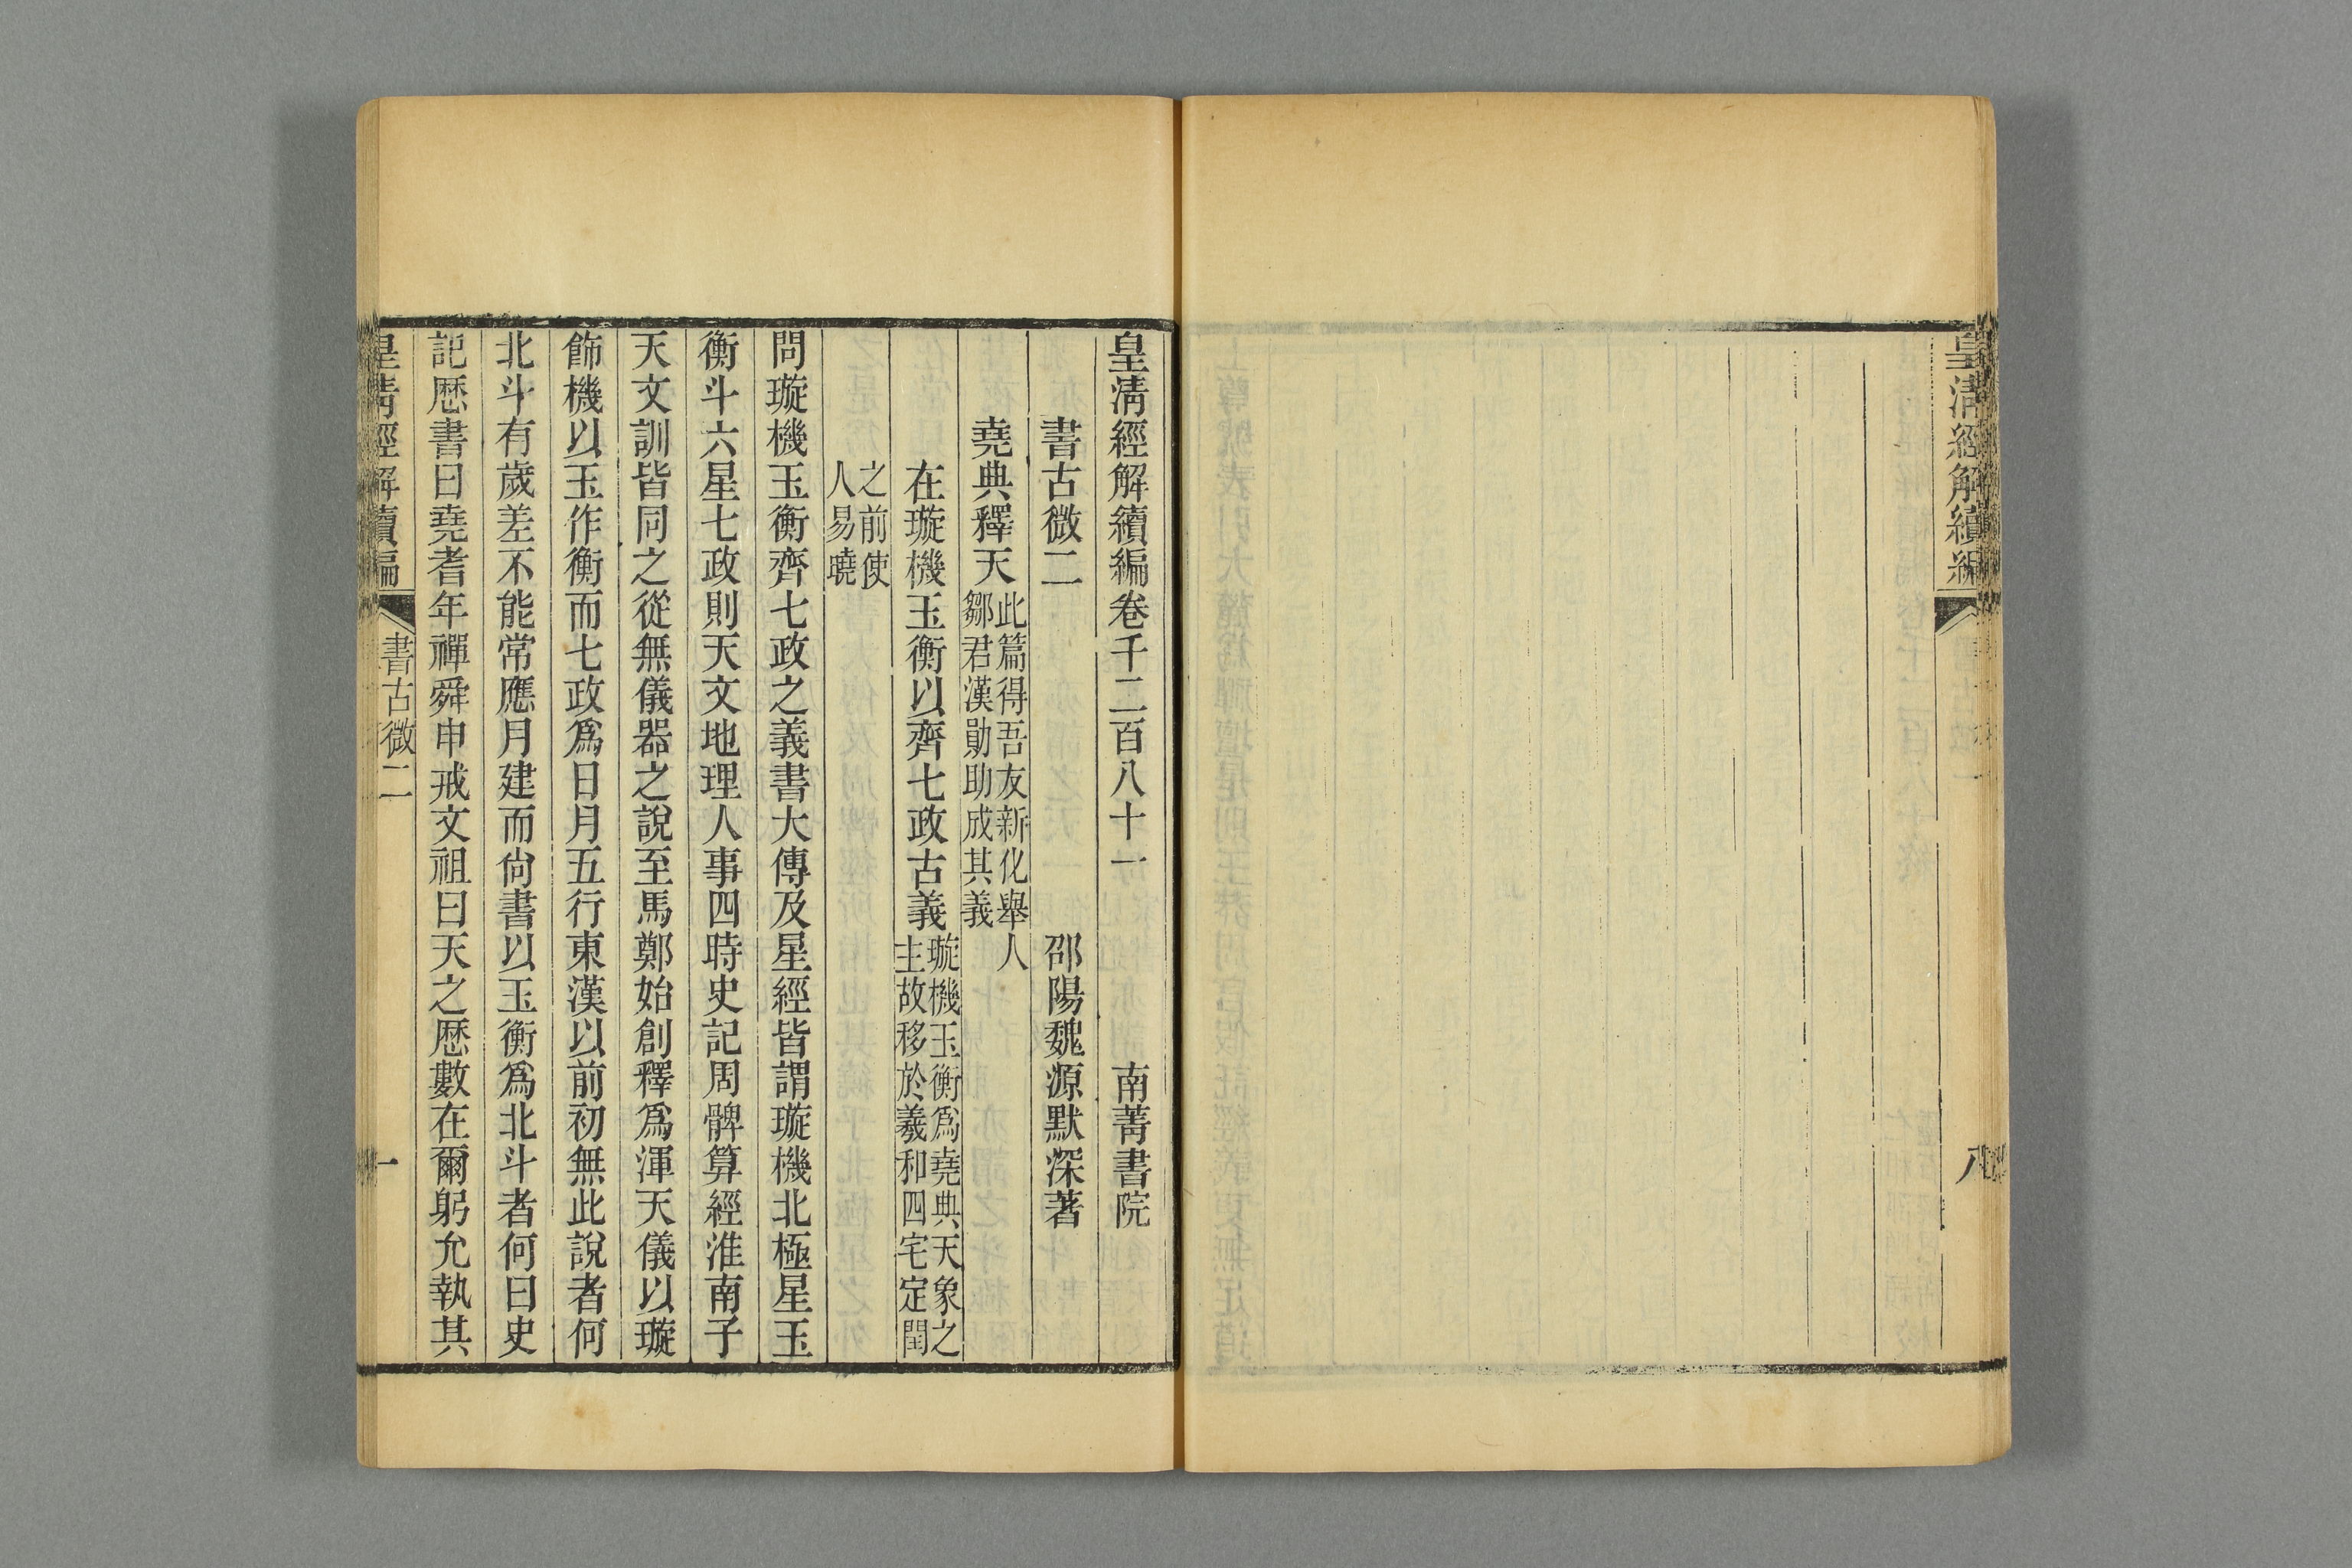 皇清經解續編
八
皇清經解續編卷千二百八十一　南菁書院
書古微二　邵陽魏源默深著
堯典釋天
此篇得吾友新化舉人
鄒君漢勛助成其義
在璇機玉衡以齊七政古義
璇機玉衡爲堯典天象之
主故移於羲和四宅定閏
之前使
人易曉
問璇機玉衡齊七政之義書大傳及星經皆謂璇機北極星玉
衡斗六星七政則天文地理人事四時史記周髀算經淮南子
天文訓皆同之從無儀器之說至馬鄭始創釋爲渾天儀以璇
飾機以玉作衡而七政爲日月五行東漢以前初無此說者何
北斗有歲差不能常應月建而尙書以玉衡爲北斗者何曰史
記歷書曰堯耆年禪舜申戒文祖曰天之歷數在爾躬允執其
皇清經解續編
書古微二
一